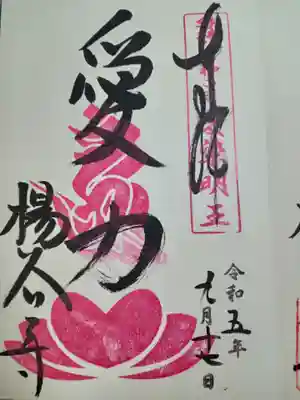 奉拝
明王
愛力
楊谷寺
令和五年
九月十七日